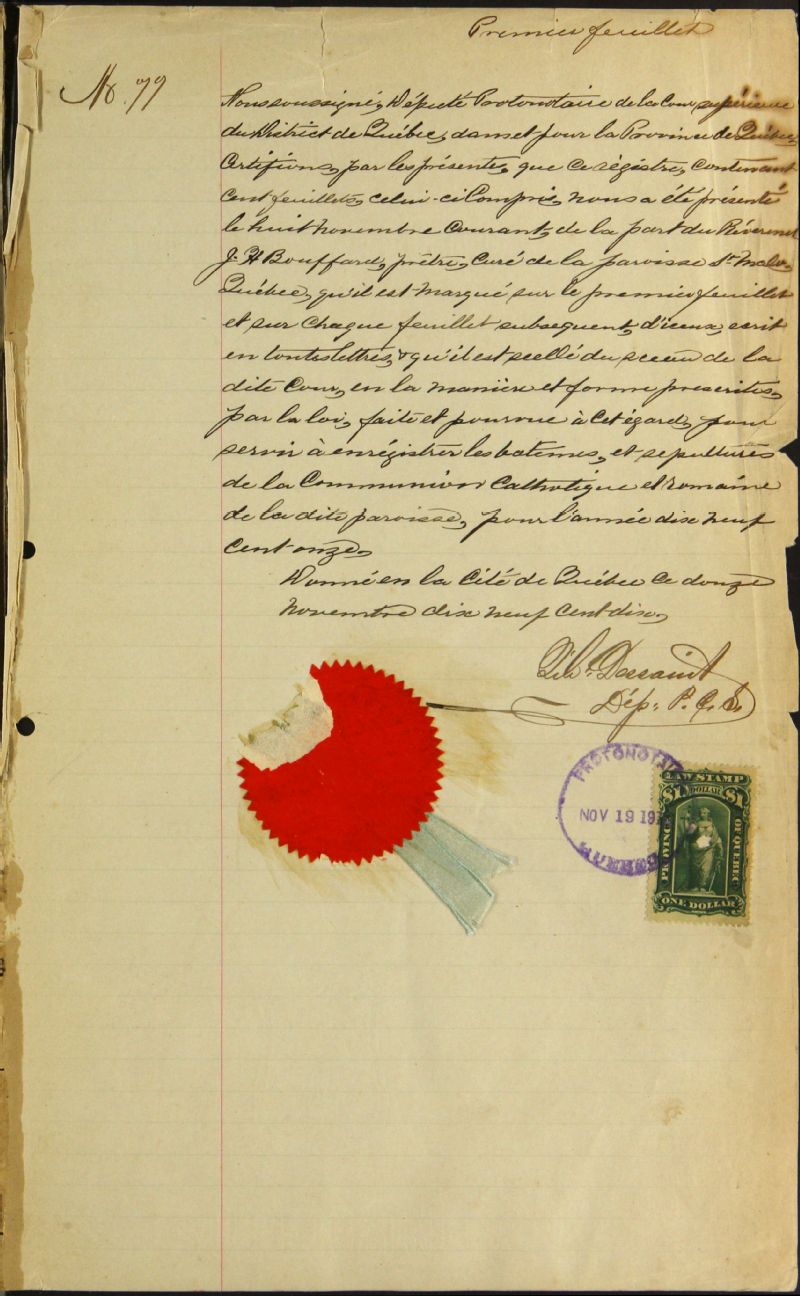 Premier feuillet
No. 77
Nous soussigné, Député Protonotaire de la Cour supérieure
du District de Québec, dans et pour la Province de Québec,
Certifions, par les présentes, que ce régistre, contenant
cent feuillets, celui-ci Compris, nous a été présenté
le huit novembre Courant, de la part du Réverend
J. H Bouffard, prêtre, Curé de la paroisse St. Malo
Québec, qu'il est marqué sur le premier feuillet
et sur chaque feuillet subsequent, d'iceux, ecrit
en toutes lettres, & qu'il est scellé du sceau de la
dite Cour, en la manière et forme prescrites,
par la loi, faite et pourvue à cet égard, pour
servir à enrégistrer les batemes, et sepultures
de la Communion Catholique et Romaine
de la dite paroisse, pour l'année dix neuf
cent onze,
Donné en la Cité de Québec ce douze
novembre dix neuf cent dix,
Dép. P. C. S.
PROTONOTAI
NOV 19 19
LAW STAMP
$1 DOLLAR $1
PROVINCE OF QUEBEC
ONE DOLLAR